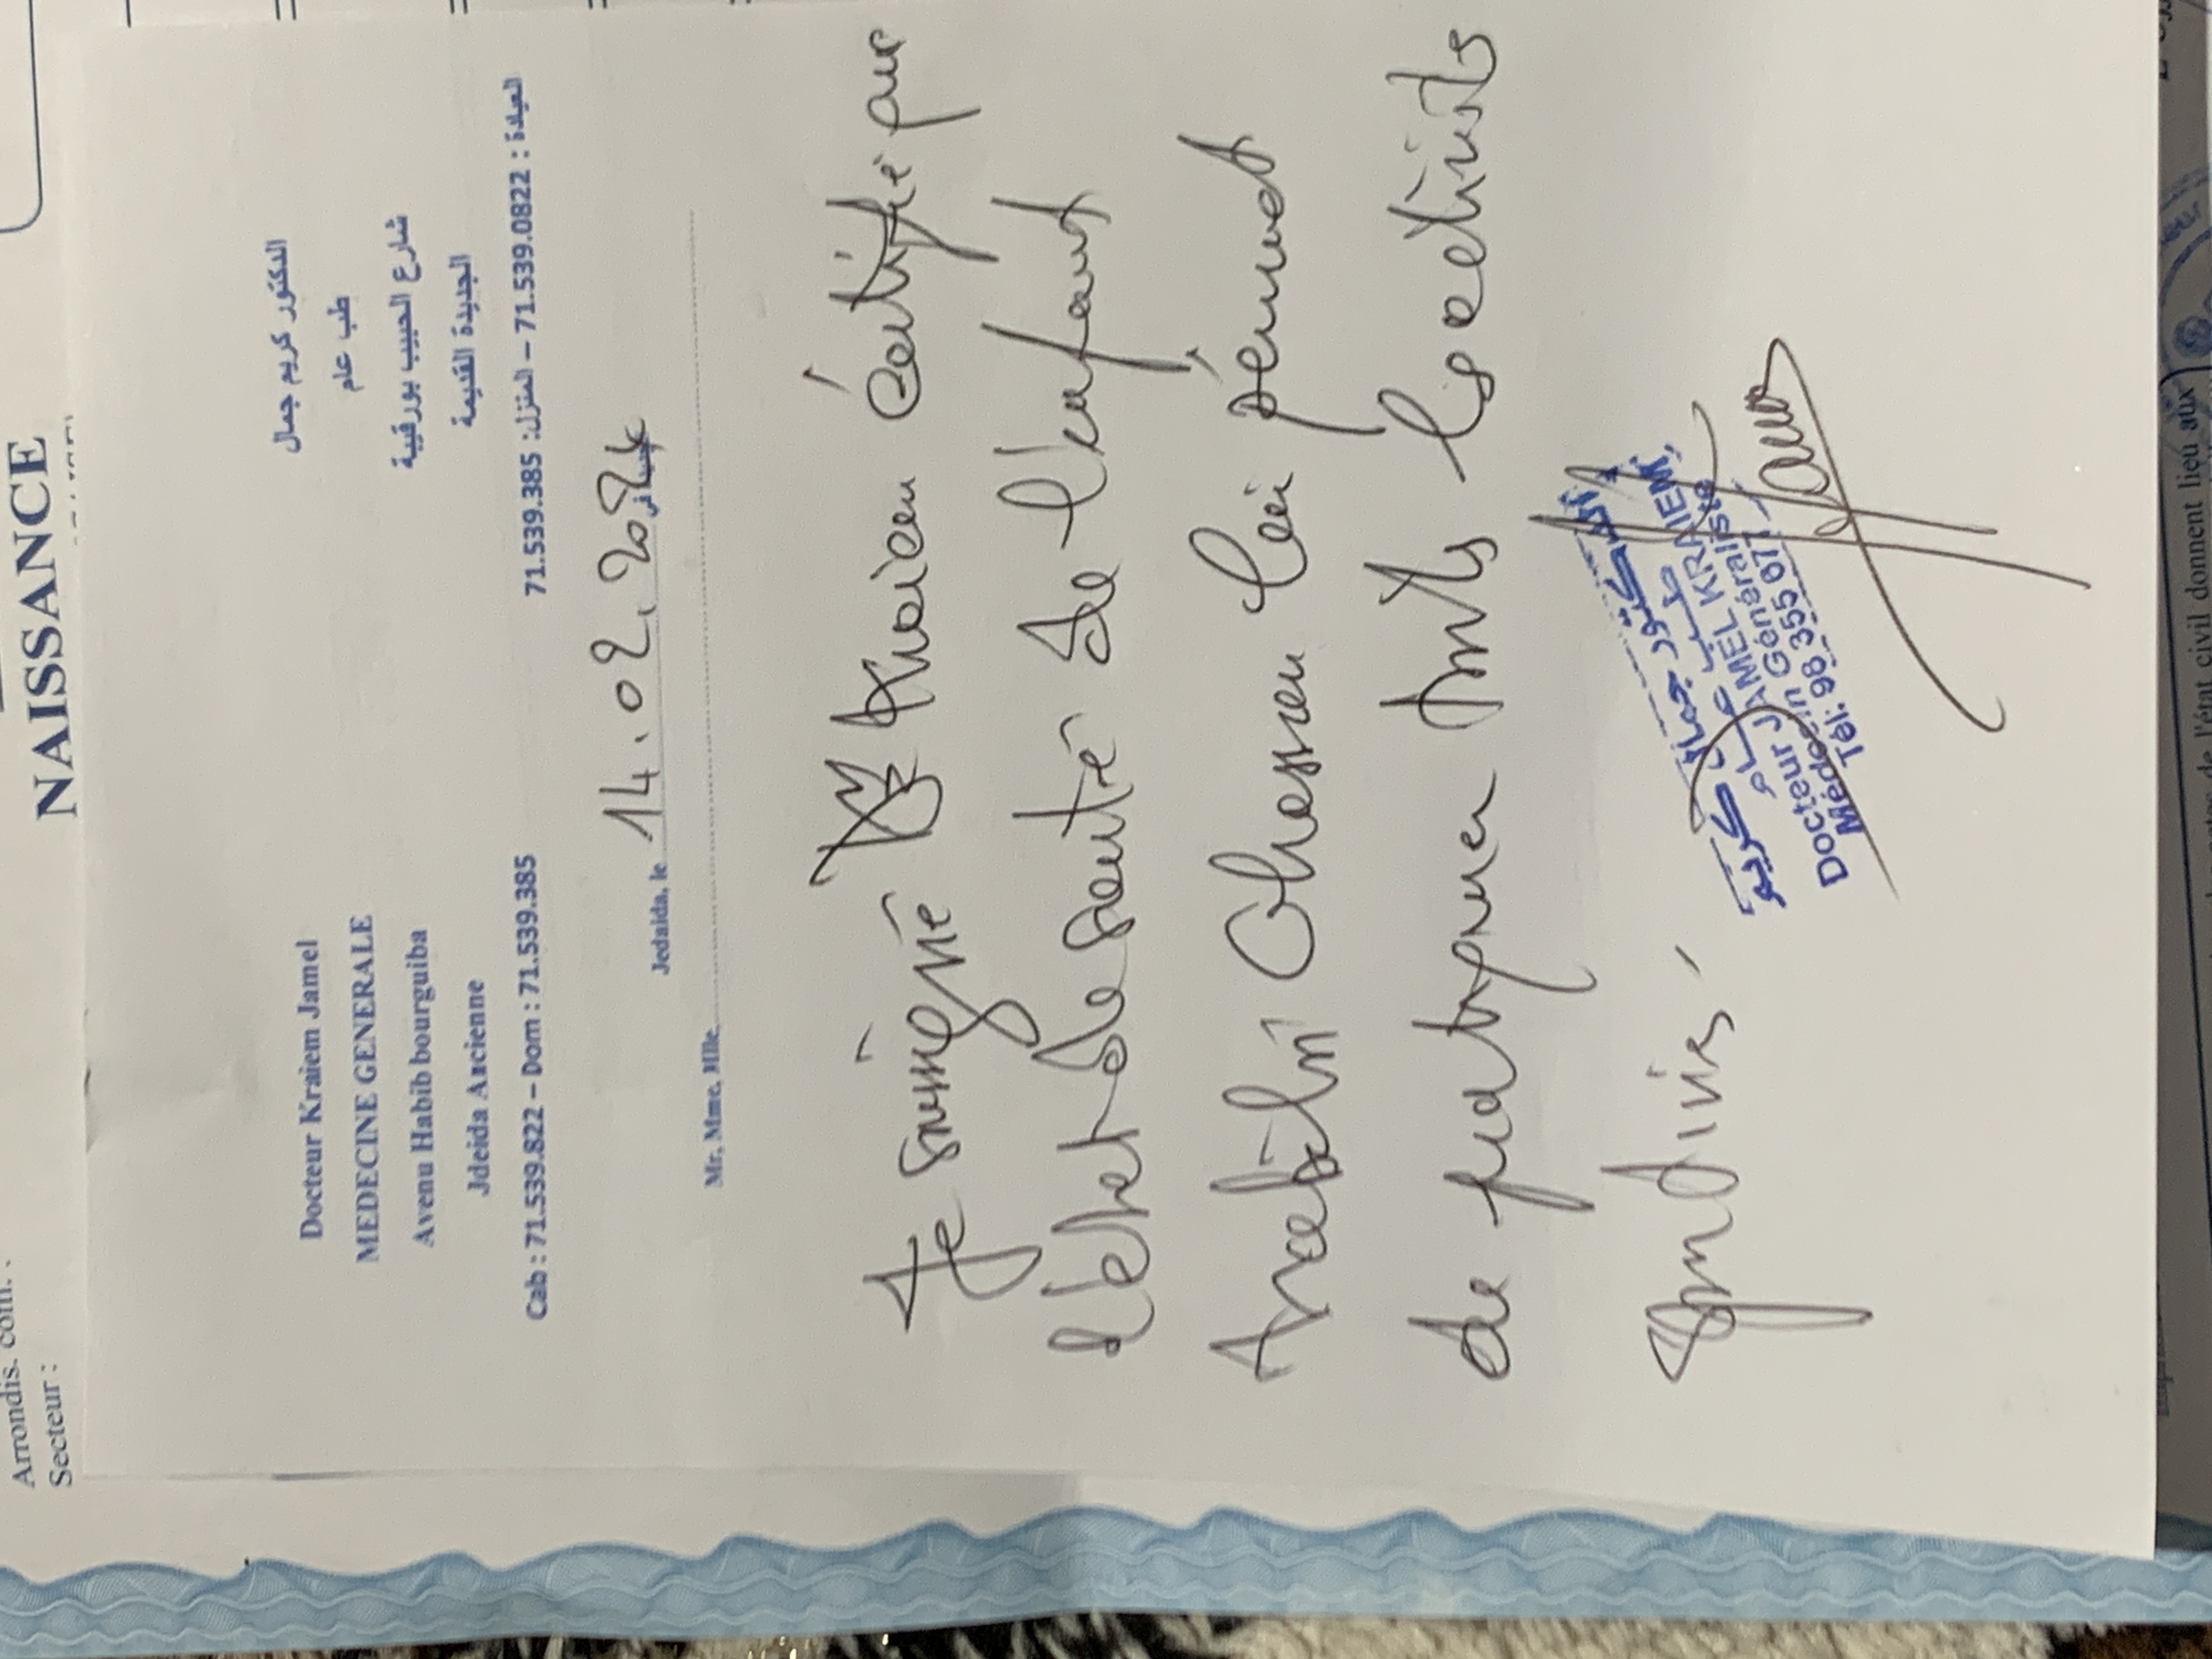 Arrondis. com. :
Secteur :
NAISSANCE
Docteur Kraiem Jamel
MEDECINE GENERALE
Avenu Habib bourguiba
Jdeida Ancienne
Cab : 71.539.822 – Dom : 71.539.385
الدكتور كريم جمال
طب عام
شارع الحبيب بورقيبة
الجديدة القديمة
العيادة : 71.539.0822 – المنزل: 71.539.385
Jedaida, le 14.02.2024
Mr, Mme, Mlle
Je soussigné Dr Kraiem certifie que
l'état de santé de l'enfant
lui permet
de pratiquer toutes les activités
sportives.
الدكتور جمال كريم
طب عام
Docteur JAMEL KRAIEM
Médecin Généraliste
Tél: 98 355 071
de l'état civil donnent lieu aux